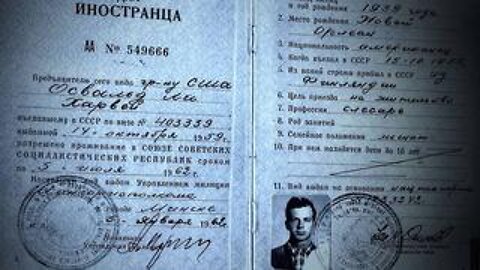 ИНОСТРАНЦА
АА № 549666
Предъявитель сего вида гр-ну США
Освальд Ли
Харвей
въехавшему в СССР по визе № 403339
выданной 14 октября 1959г.
разрешено проживание в СОЮЗЕ СОВЕТСКИХ
СОЦИАЛИСТИЧЕСКИХ РЕСПУБЛИК сроком
по 5 июля 1962г.
Настоящий вид выдан Управлением милиции
Минск
5 января 1962
1939 года
и год рождения
2. Место рождения Новый
Орлеан
3. Национальность американец
4. Когда въехал в СССР
5. Из какой страны прибыл в СССР из
Финляндии
6. Цель приезда на жительство
7. Профессия слесарь
8. Род занятий
9. Семейное положение женат
10. При нем находятся дети до 16 лет
11. Вид выдан на основании